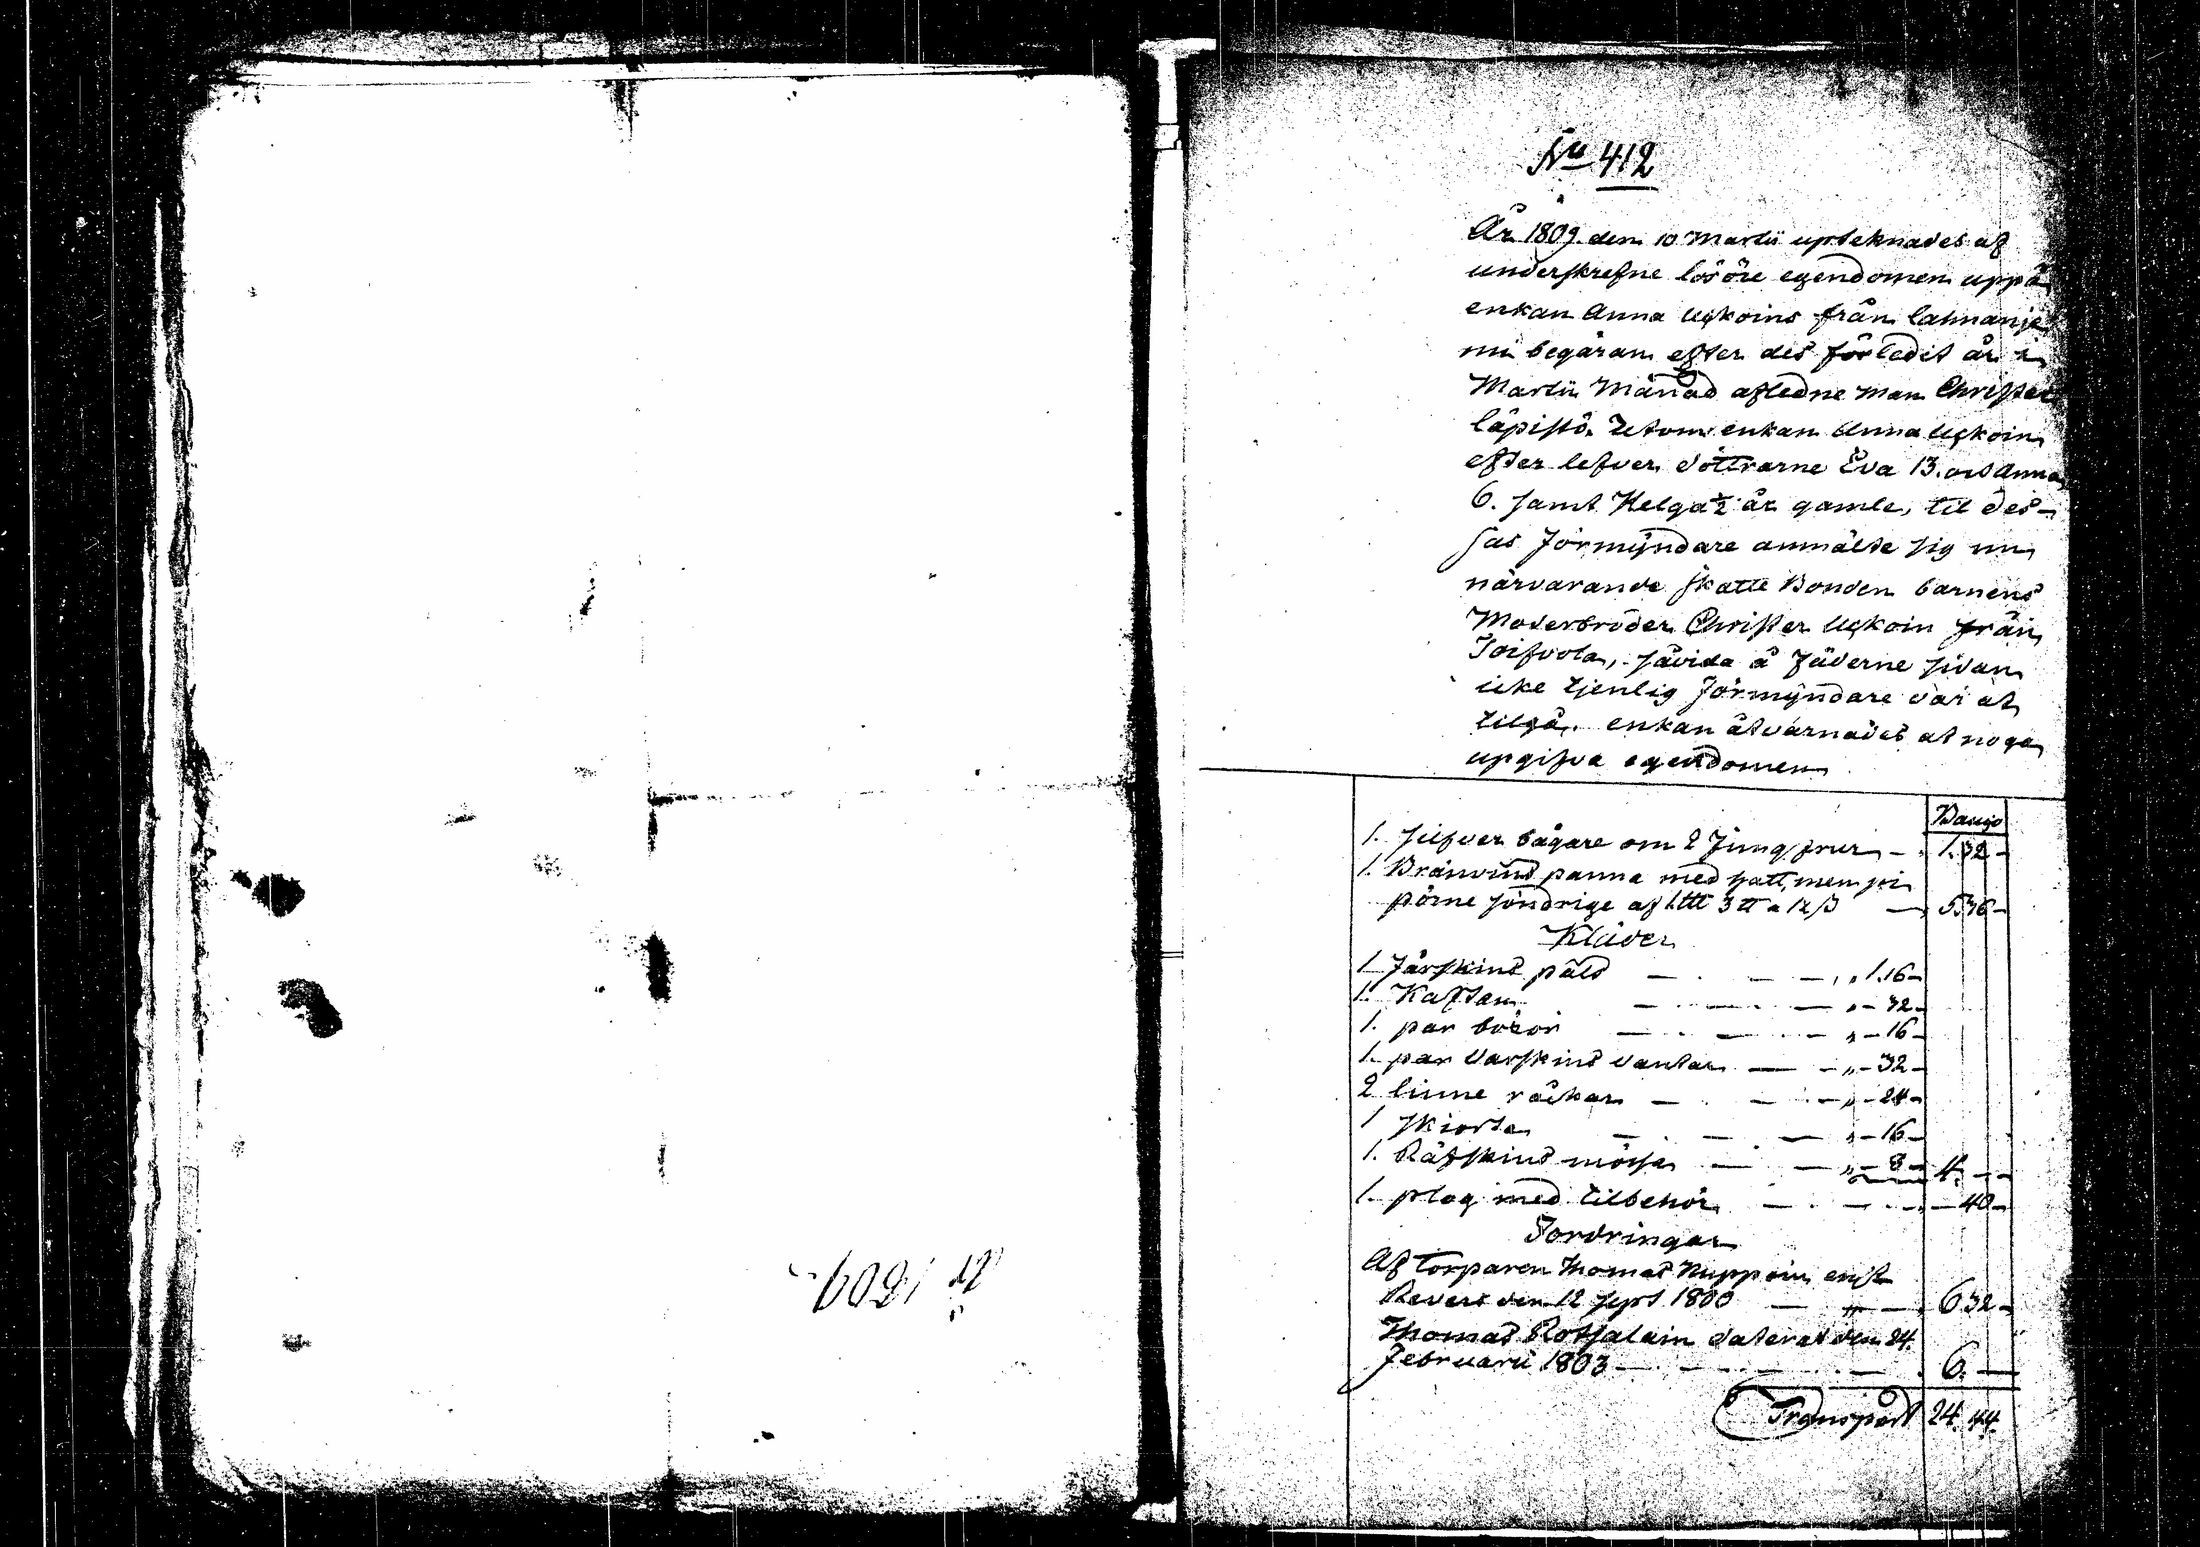 No 412
År 1809. den 10 Martii upteknades af
underskrefne lösöre egendomen uppå
enkan Anna Uskoins från lahnanie
mi begäran efter des förledit år i
Martii Månad afledne man Christer
läpistö. Utom enkan Anna Uskoin
efter lefver döttrarne Eva 13. och Anna
6. samt Helga ½ år gamle, til des-
sas förmyndare anmälte sig nu
närvarande skatte Bonden barnens
Moderbroder Christer Uskoin från
Toifvola, såvida å fäderne sidan
icke tjenlig förmyndare var at
tilgå. enkan åtvarnades at noga
upgifva egendomen
Banco
1. silfver bägare om 2 jungfrur - 1.32 -
1. Bränvins panna med hatt, men pi
pörne söndrige af 1 ltt 3 tt a 12 s — 5.36 -
Kläder
1 fårskins päls — — „ 1.16 -
1. Kaftan — — „ - 32 -
1. par böxor — — „ - 16 -
1. par varskins vantar — „ - 32 -
2 linne råckar — — „ - 24 -
1 skiorta — — „ - 16 -
1. Räfskins mössa — — „ - 8 - 4. - -
1. plog med tilbehör — — - 40 -
Fordringar
Af Torparen Thomas Nuppoin enl.
Revers den 12 Sept 1800 — „ — 6 32 -
Thomas Rotsalain daterat den 24.
Februarii 1803 — — 6. —
Transport 24. 44.
År 1809.